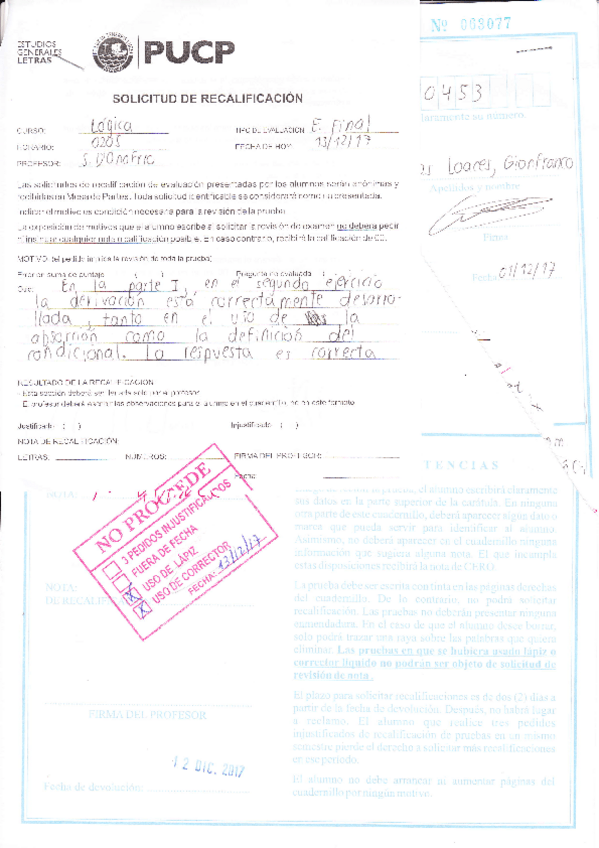 ESTUDIOS
GENERALES
LETRAS
PUCP
SOLICITUD DE RECALIFICACIÓN
CURSO: Lógica TIPO DE EVALUACIÓN: E. Final
HORARIO: 0205 FECHA DE HOY: 13/12/17
PROFESOR: S. D'Onofrio
Las solicitudes de recalificación de evaluación presentadas por los alumnos serán anónimas y
recibidas en Mesa de Partes. Toda solicitud identificable se considerará como no presentada.
Indicar el motivo es condición necesaria para la revisión de la prueba.
La exposición de motivos que el alumno escriba al solicitar la revisión de examen no deberá pedir
ni insinuar cualquier nota o calificación posible. En caso contrario, recibirá la calificación de 00.
MOTIVO: (el pedido implica la revisión de toda la prueba)
Error en suma de puntaje ( ) Pregunta no evaluada ( )
Que: En la parte I, en el segundo ejercicio
la derivación está correctamente desarro-
llada, tanto en el uso de la
absorción como la definición del
condicional. La respuesta es correcta
RESULTADO DE LA RECALIFICACIÓN
- Esta sección deberá ser llenada solo por el profesor.
- El profesor deberá escribir las observaciones para el alumno en el cuadernillo, no en este formato.
Justificado ( ) Injustificado ( )
NOTA DE RECALIFICACIÓN:
LETRAS: NÚMEROS: FIRMA DEL PROFESOR:
Fecha:
Nº 003077
0453
claramente su número
Loares, Gionfranco
Apellidos y nombre
Firma
Fecha: 01/12/17
NO PROCEDE
3 PEDIDOS INJUSTIFICADOS
FUERA DE FECHA
X USO DE LÁPIZ
X USO DE CORRECTOR
FECHA: 13/12/17
NOTA:
NOTA:
DE RECALIF
FIRMA DEL PROFESOR
12 DIC. 2017
Fecha de devolución:
TENCIAS
el alumno escribirá claramente
sus datos en la parte superior de la carátula. En ninguna
otra parte de este cuadernillo, deberá aparecer algún dato o
marca que pueda servir para identificar al alumno.
Asimismo, no deberá aparecer en el cuadernillo ninguna
información que sugiera alguna nota. El que incumpla
estas disposiciones recibirá la nota de CERO.
La prueba debe ser escrita con tinta en las páginas derechas
del cuadernillo. De lo contrario, no podrá solicitar
recalificación. Las pruebas no deberán presentar ninguna
enmendadura. En el caso de que el alumno desee borrar,
solo podrá trazar una raya sobre las palabras que quiera
eliminar. Las pruebas en que se hubiera usado lápiz o
corrector líquido no podrán ser objeto de solicitud de
revisión de nota.
El plazo para solicitar recalificaciones es de dos (2) días a
partir de la fecha de devolución. Después, no habrá lugar
a reclamo. El alumno que realice tres pedidos
injustificados de recalificación de pruebas en un mismo
semestre pierde el derecho a solicitar más recalificaciones
en ese periodo.
El alumno no debe arrancar ni aumentar páginas del
cuadernillo por ningún motivo.